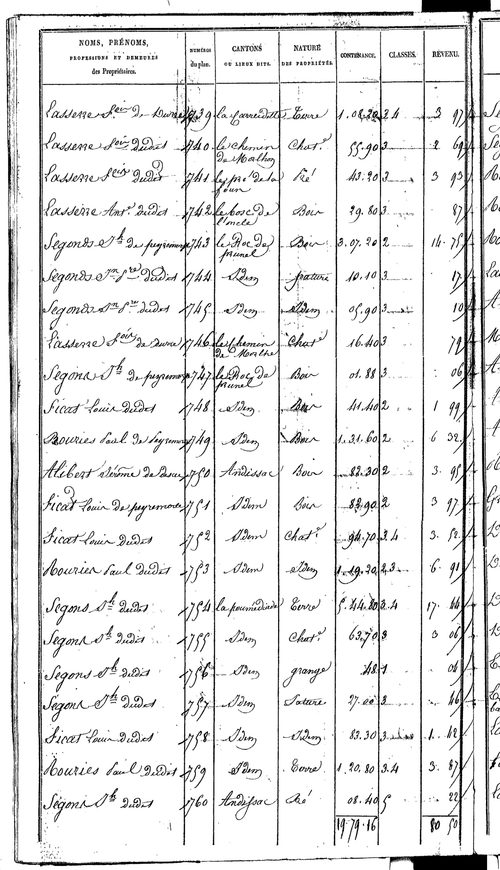 NOMS, PRÉNOMS, PROFESSIONS ET DEMEURES des Propriétaires. NUMÉROS du plan. CANTONS OU LIEUX DITS. NATURE DES PROPRIÉTÉS. CONTENANCE. CLASSES. REVENU.
Lasserre de 1739 la Terre 1.08.20 3.4 3 97
Lasserre dudit 1740 le chemin de Chat.e 55.90 3 2 69
Lasserre dudit 1741 les pré de la Pré 43.20 3 3 93
Lasserre Ant.e dudit 1742 le bosc de l'oncle Bois 29.80 3 87
Segonds J.h de peyremorte 1743 le Roc de prunel Bois 3.07.20 2 14.75
Segonds J.n dudit 1744 Idem pature 10.10 3 17
Segonds J.n dudit 1745 Idem Idem 05.90 3 10
Lasserre de 1746 le Chemin de Chat.e 16.40 3 79
Segons J.h de peyremorte 1747 le Roc de prunel Bois 01.88 3 06
Ficat Louis dudit 1748 Idem Bois 41.40 2 1 99
Bouries Paul de Peyremorte 1749 Idem Bois 1.31.60 2 6 32
Alibert Jérôme de 1750 Andissac Bois 82.30 2 3.95
Ficat Louis de peyremorte 1751 Idem Bois 82.90 2 3 97
Ficat Louis dudit 1752 Idem Chat.e 94.70 3.4 3.52
Rouries Paul dudit 1753 Idem Idem 1.19.20 2.3 6 91
Segons J.h dudit 1754 Terre 5.44.80 3.4 17 44
Segons J.h dudit 1755 Idem Chat.e 63.70 3 3 06
Segons J.h dudit 1756 Idem grange .48 1 04
Segons J.h dudit 1757 Idem Pature 27.00 3 46
Ficat Louis dudit 1758 Idem Idem 83.30 3 1.42
Rouries Paul dudit 1759 Idem Terre 1.20.80 3.4 3.87
Segons J.h dudit 1760 Andissac Pré 08.40 5 22
19.79.16 80 50